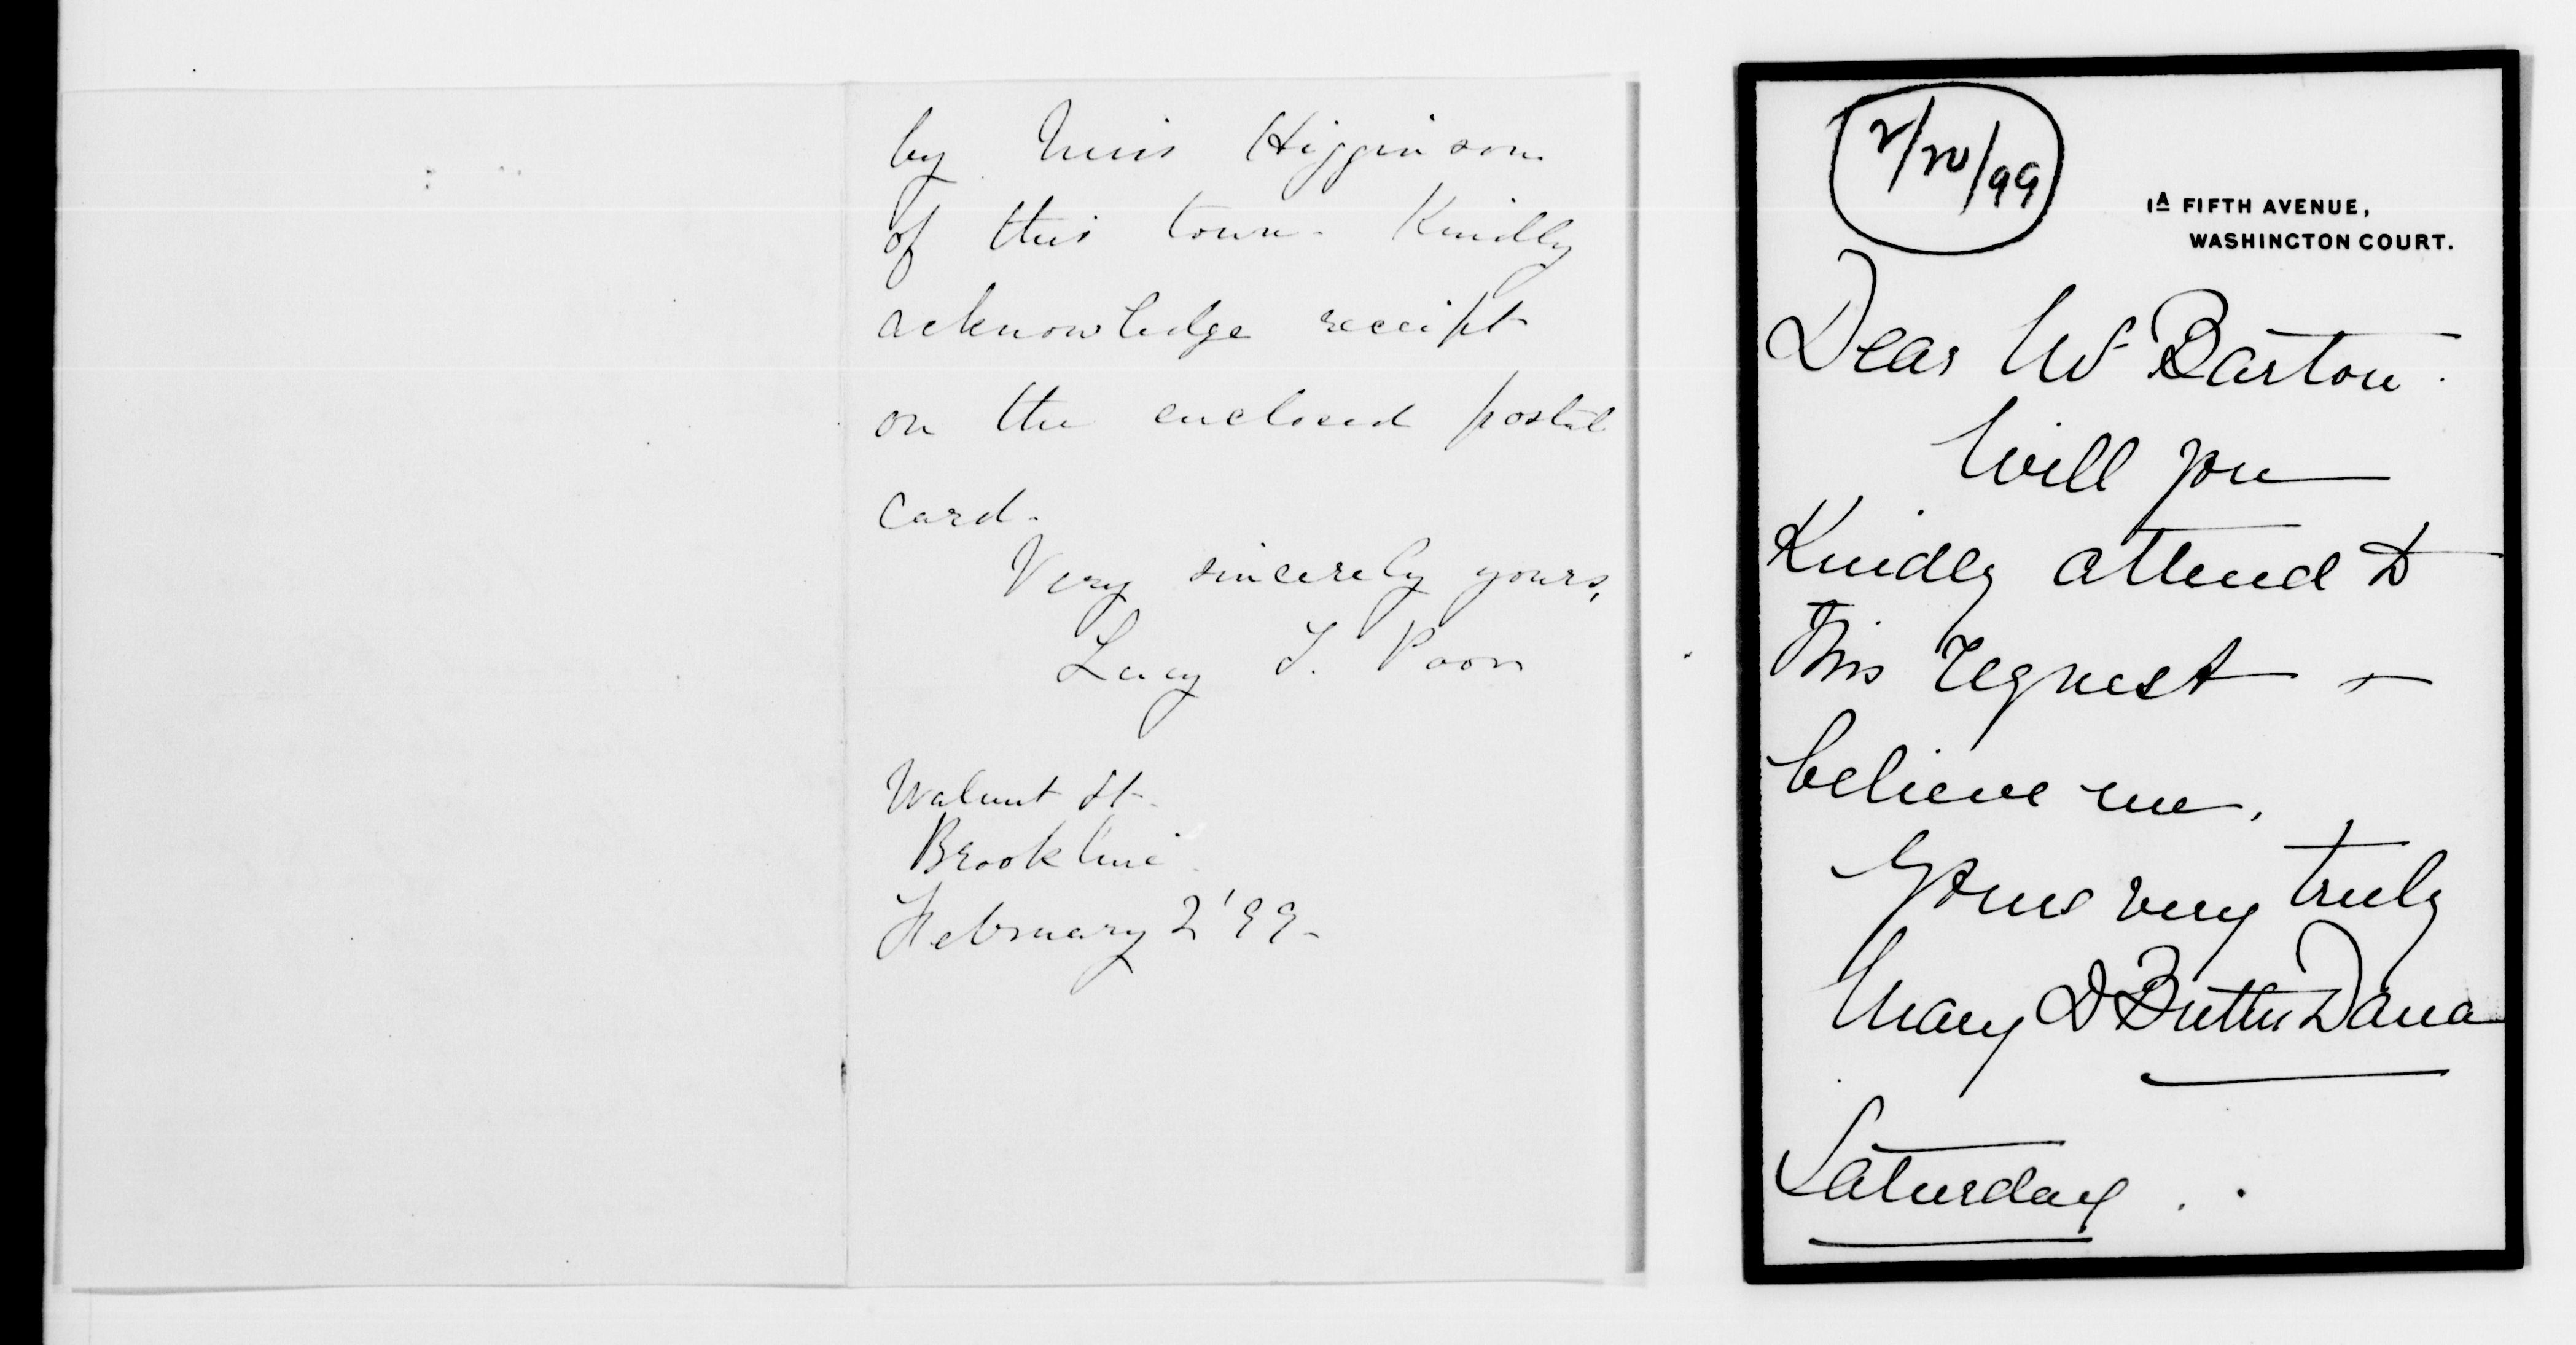 by Miss Higginson
of this town. Kindly
acknowledge receipt
on the enclosed postal
card.
Very sincerely yours,
Lucy T. Poor
Walnut St.
Brookline.
February 2 '99.
2/20/99
1A FIFTH AVENUE,
WASHINGTON COURT.
Dear Mr Barton.
Will you
Kindly attend to
this request &
believe me,
Yours very truly
Mary Butler Dana
Saturday.